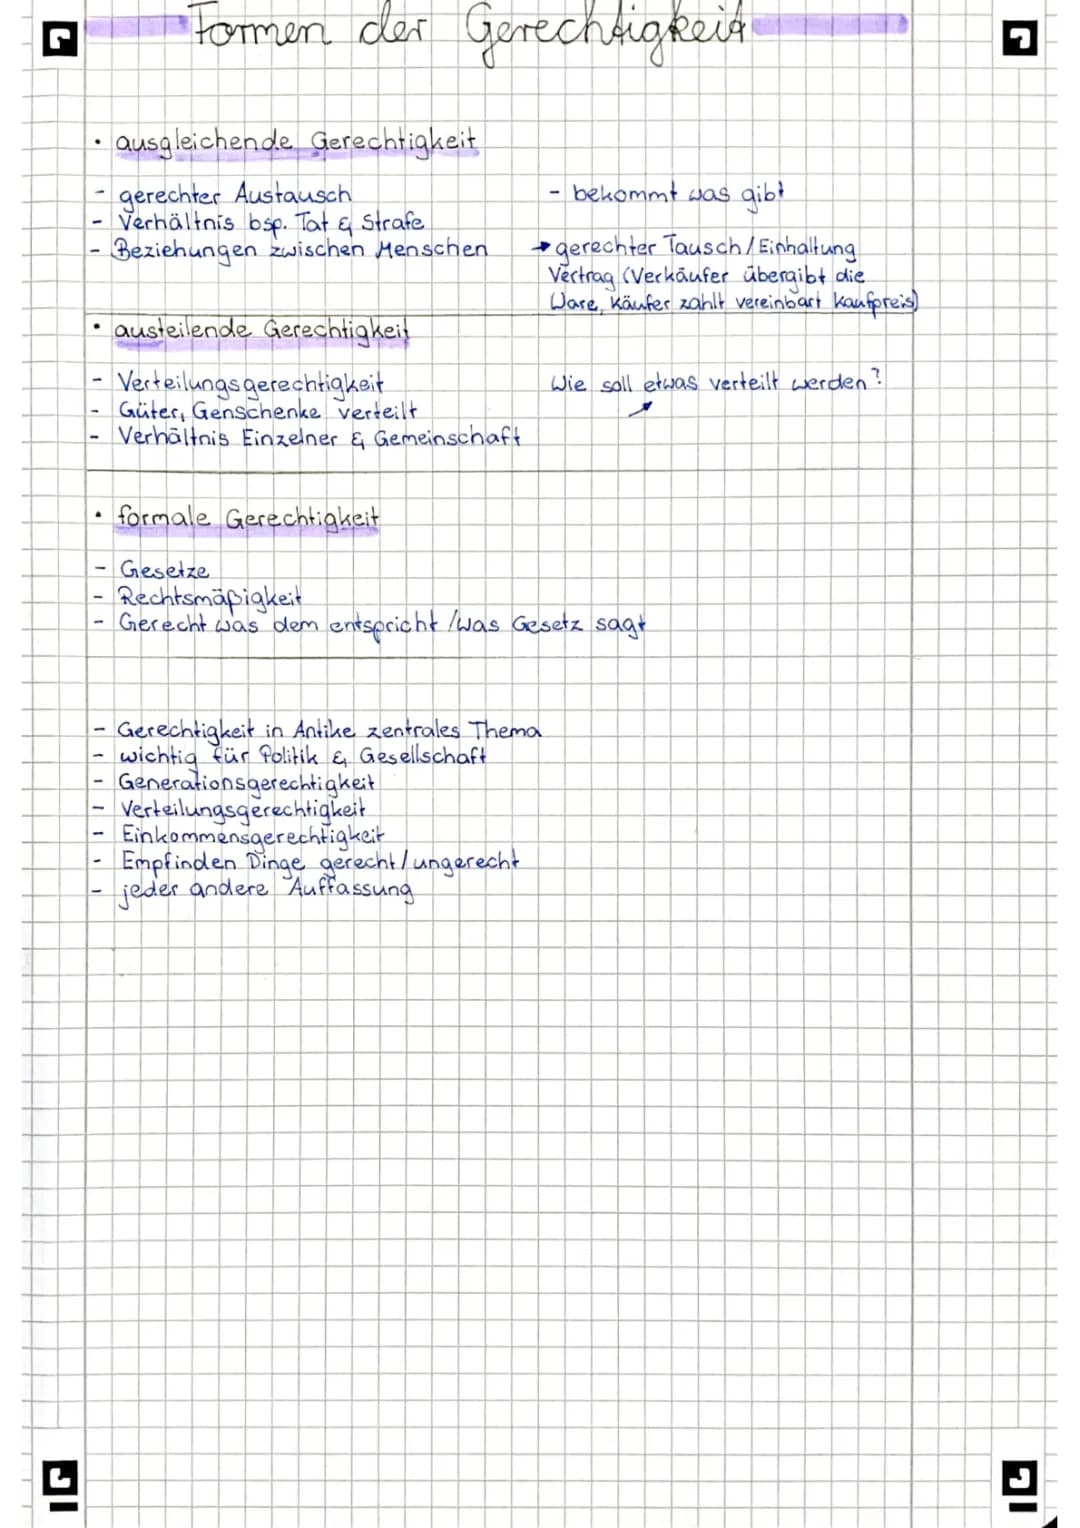 Formen der Gerechtigkeit
• ausgleichende Gerechtigkeit
- gerechter Austausch
- Verhältnis bsp. Tat & Strafe
- Beziehungen zwischen Menschen
- bekommt was gibt
→ gerechter Tausch/Einhaltung
Vertrag (Verkäufer übergibt die
Ware, Käufer zahlt vereinbart Kaufpreis)
• austeilende Gerechtigkeit
- Verteilungsgerechtigkeit
- Güter, Genschenke verteilt
- Verhältnis Einzelner & Gemeinschaft
Wie soll etwas verteilt werden?
• formale Gerechtigkeit
- Gesetze
- Rechtsmäßigkeit
- Gerecht was dem entspricht /was Gesetz sagt
- Gerechtigkeit in Antike zentrales Thema
- wichtig für Politik & Gesellschaft
- Generationsgerechtigkeit
- Verteilungsgerechtigkeit
- Einkommensgerechtigkeit
- Empfinden Dinge gerecht/ungerecht
- jeder andere Auffassung